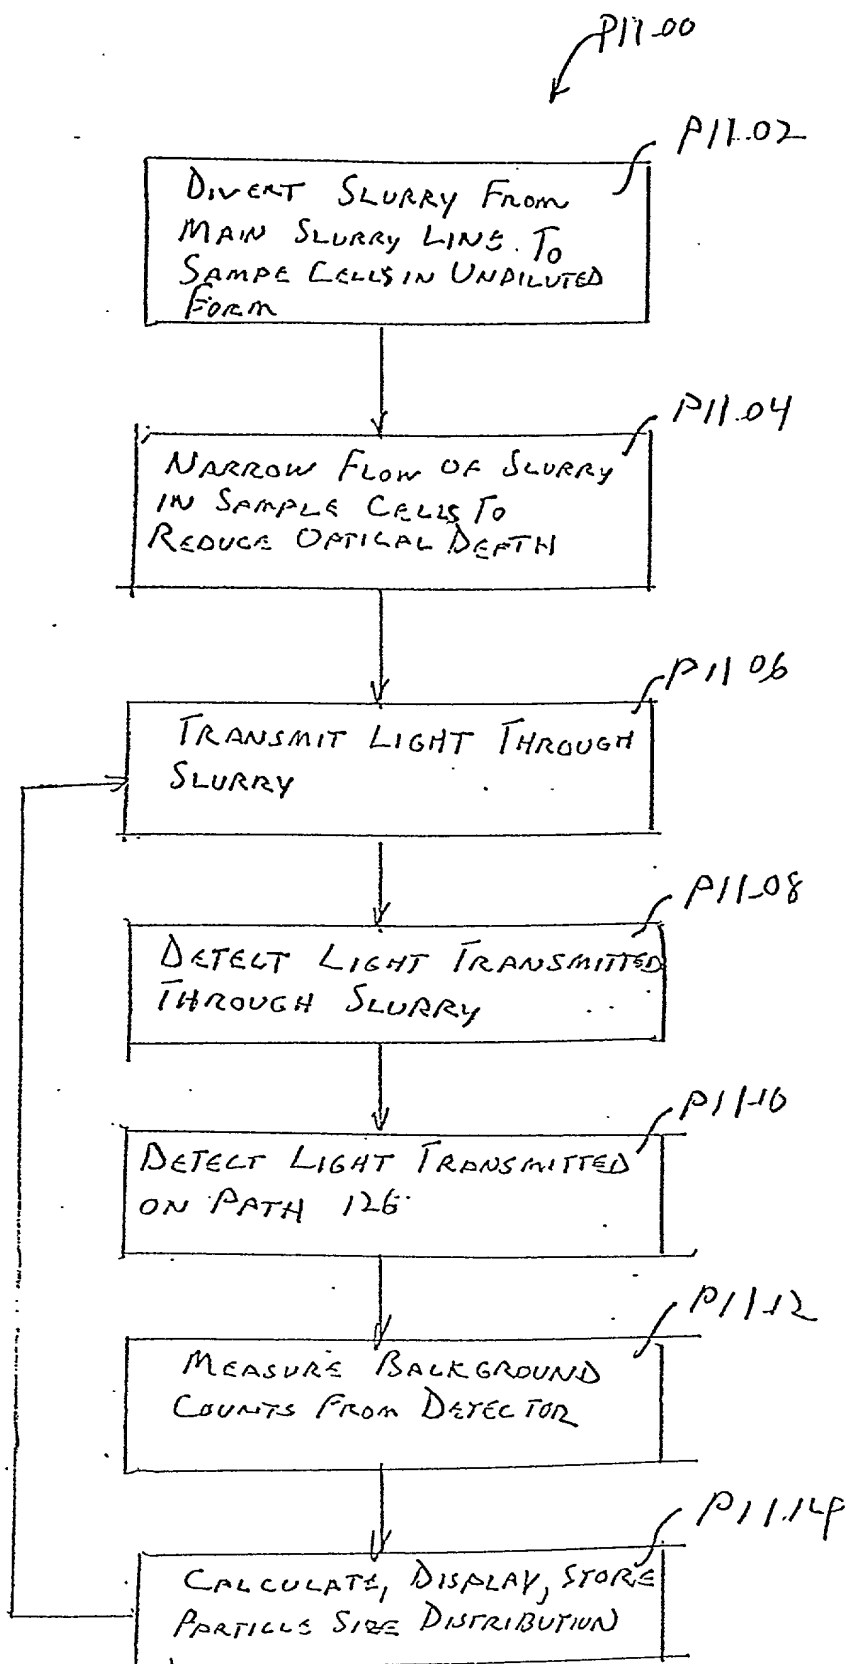 P11.00
P11.02
DIVERT SLURRY FROM
MAIN SLURRY LINE. TO
SAMPE CELLS IN UNDILUTED
FORM
P11.04
NARROW FLOW OF SLURRY
IN SAMPLE CELLS TO
REDUCE OPTICAL DEPTH
P11.06
TRANSMIT LIGHT THROUGH
SLURRY
P11.08
DETECT LIGHT TRANSMITTED
THROUGH SLURRY
P11.10
DETECT LIGHT TRANSMITTED
ON PATH 126
P11.12
MEASURE BACKGROUND
COUNTS FROM DETECTOR
P11.14
CALCULATE, DISPLAY, STORE
PARTICLE SIZE DISTRIBUTION